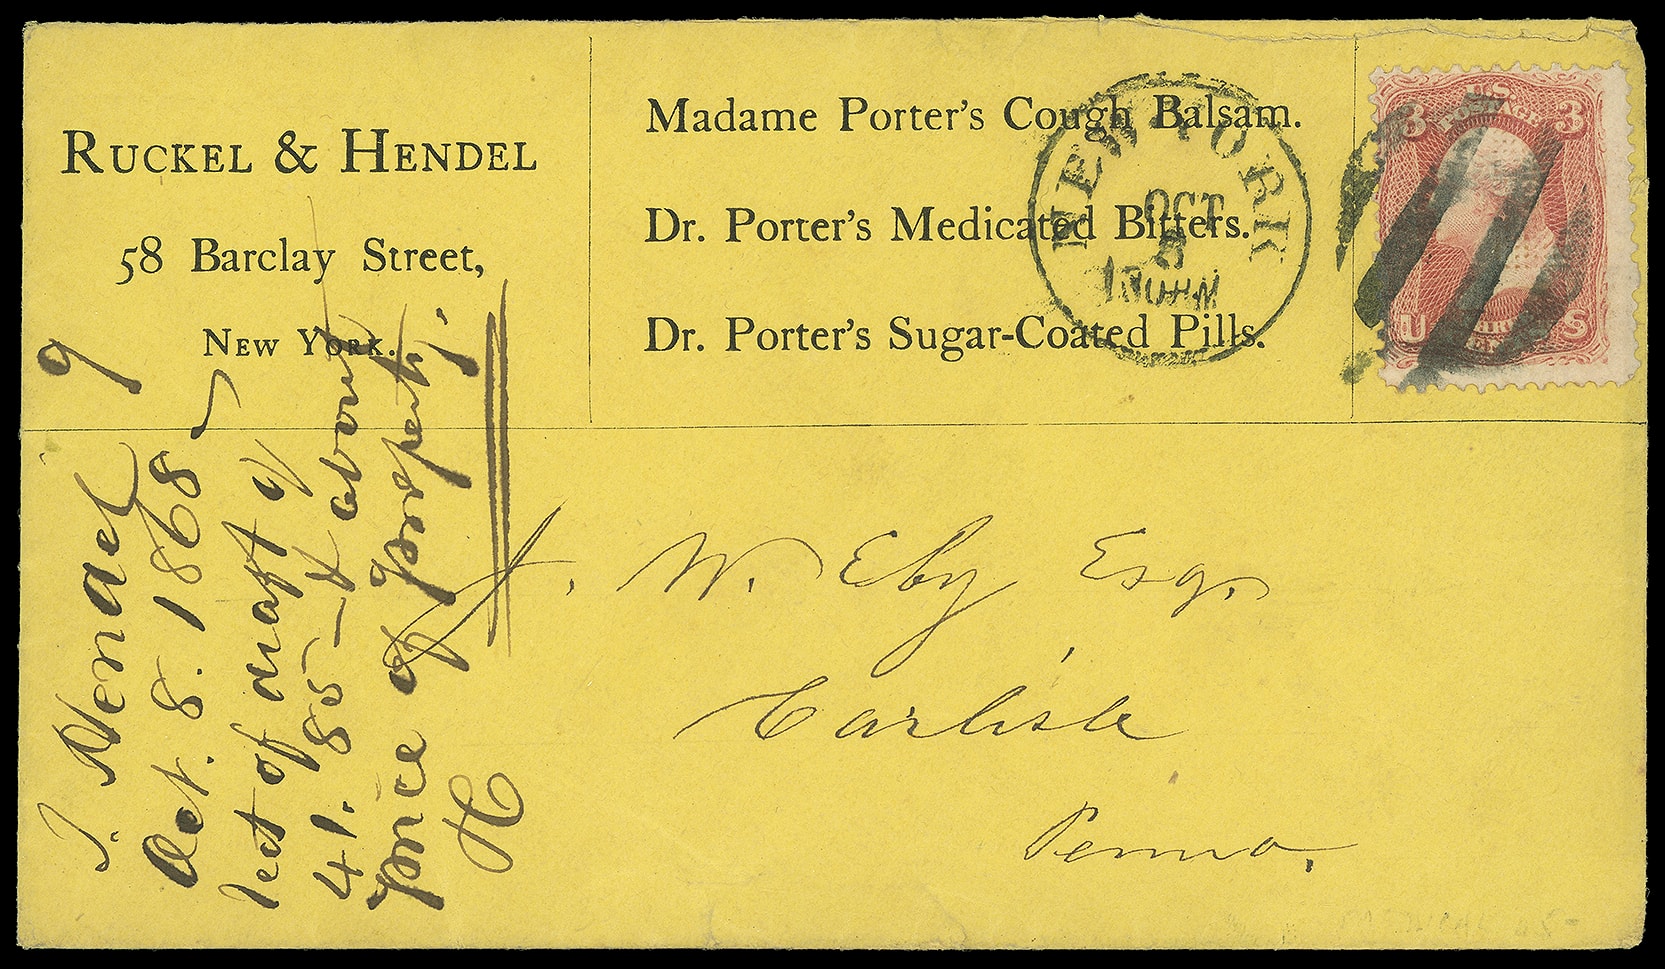 RUCKEL & HENDEL
58 Barclay Street,
NEW YORK.
Madame Porter's Cough Balsam.
Dr. Porter's Medicated Bitters.
Dr. Porter's Sugar-Coated Pills.
NEW YORK
OCT
U.S.
POSTAGE
3 3
U S
J. W. Eby Esq.
Carlisle
Penna.
9
Oct. 8. 1868
rect of draft of
41.85 & about
price of property.
H